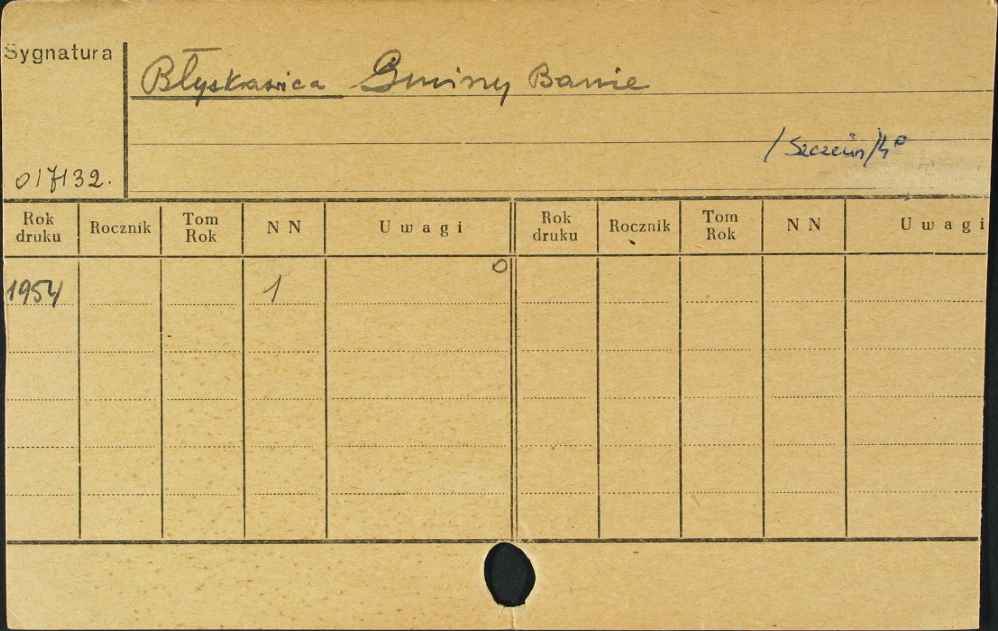 Sygnatura
Błyskawica Gminy Banie
/Szczecin/4°
017132.
Rok druku Rocznik Tom Rok N N Uwagi Rok druku Rocznik Tom Rok N N Uwagi
0
1954 1